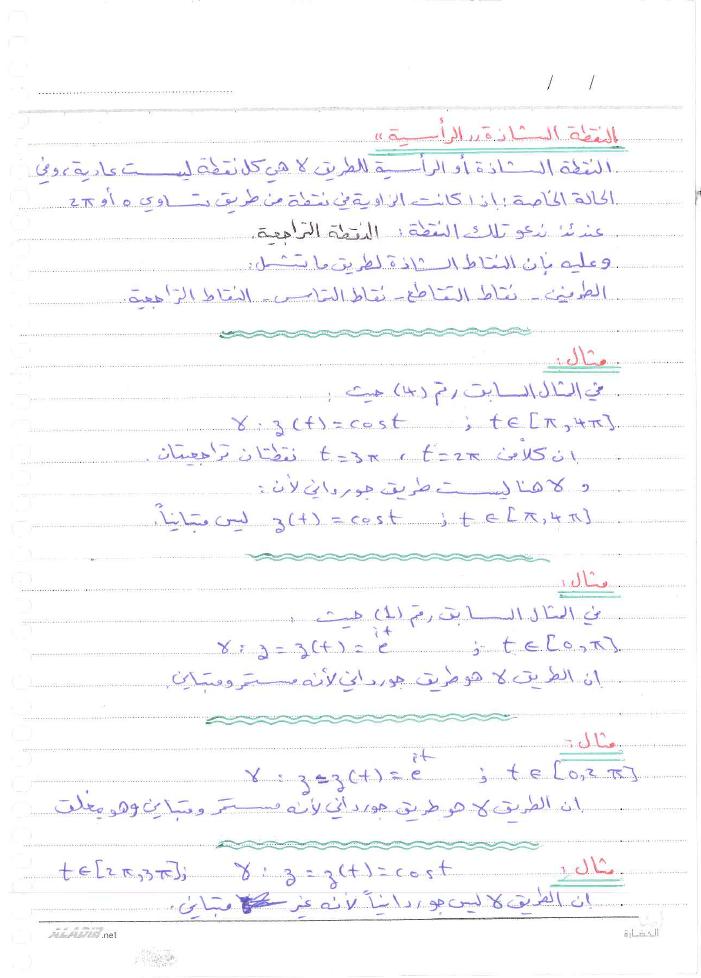 / /
النقطة الشاذة ,, الرأسية »
النقطة الشاذة أو الرأسية للطريق γ هي كل نقطة ليست عادية، وفي
الحالة الخاصة: إذا كانت الزاوية في نقطة من طريق تساوي 0 أو 2π
عندئذ ندعو تلك النقطة: النقطة التراجعية.
وعليه فإن النقاط الشاذة لطريق ما تشمل:
الطرفين - نقاط التقاطع - نقاط التماس - النقاط التراجعية.
مثال:
في المثال السابق رقم (4) حيث :
γ : z(t) = cost ; t ∈ [π, 4π]
ان كلاً من t=2π ، t=3π نقطتان تراجعيتان.
و γ هنا ليست طريق جورداني لأن:
z(t) = cost ; t ∈ [π, 4π] ليس متبايناً.
مثال:
في المثال السابق رقم (1) حيث :
γ : z = z(t) = e^{it} ; t ∈ [0, π]
ان الطريق γ هو طريق جورداني لأنه مستمر ومتباين.
مثال:
γ : z = z(t) = e^{it} ; t ∈ [0, 2π]
ان الطريق γ هو طريق جورداني لأنه مستمر ومتباين وهو مغلق
مثال: γ : z = z(t) = cost t ∈ [2π, 3π];
ان الطريق γ ليس جوردانياً لأنه غير متباين.
ALADIB.net
الحضارة